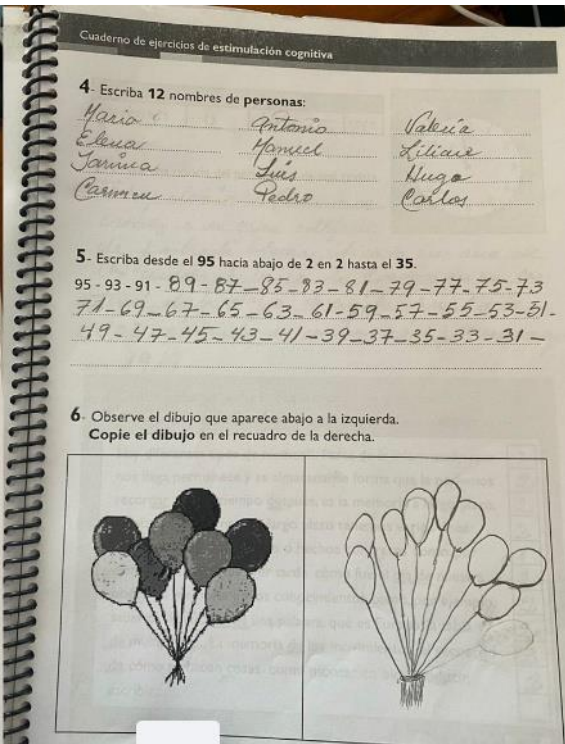 Cuaderno de ejercicios de estimulación cognitiva
4- Escriba 12 nombres de personas:
Maria Antonio Valeria
Elena Manuel Liliane
Janina Luis Hugo
Carmen Pedro Carlos
5- Escriba desde el 95 hacia abajo de 2 en 2 hasta el 35.
95 - 93 - 91 - 89 - 87 - 85 - 83 - 81 - 79 - 77 - 75 - 73
71 - 69 - 67 - 65 - 63 - 61 - 59 - 57 - 55 - 53 - 51 -
49 - 47 - 45 - 43 - 41 - 39 - 37 - 35 - 33 - 31 -
6- Observe el dibujo que aparece abajo a la izquierda.
Copie el dibujo en el recuadro de la derecha.